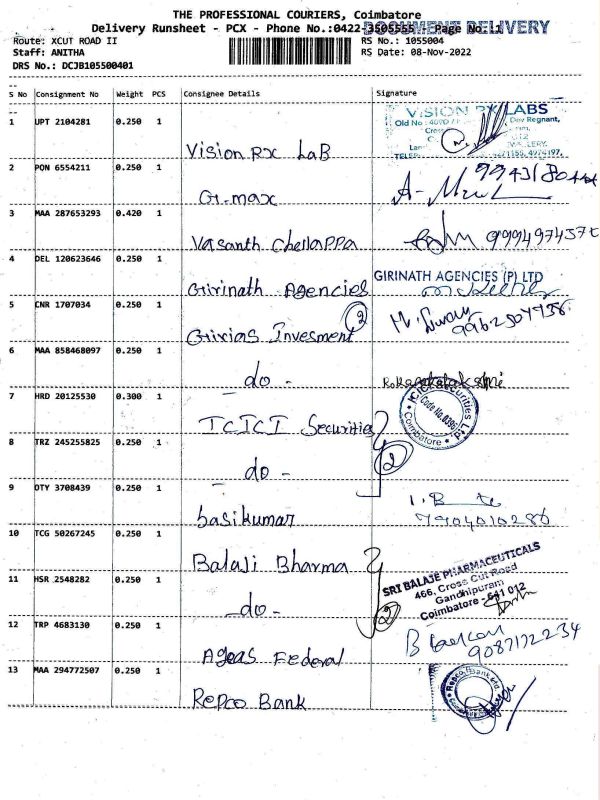 THE PROFESSIONAL COURIERS, Coimbatore
DOCUMENT DELIVERY
Delivery Runsheet - PCX - Phone No.:0422-3505555 - Page No.:1
Route: XCUT ROAD II
RS No.: 1055004
Staff: ANITHA
RS Date: 08-Nov-2022
DRS No.: DCJB105500401
S No Consignment No Weight PCS Consignee Details Signature
1 UPT 2104281 0.250 1
VISION RX LABS
Dev Regnant,
Vision Rx LaB
2 PON 6554211 0.250 1
G.max
3 MAA 287653293 0.420 1
Vasanth Chellappa
4 DEL 120623646 0.250 1
GIRINATH AGENCIES (P) LTD
Girinath Agencies
5 CNR 1707034 0.250 1
Girias Invesment 2
6 MAA 858468097 0.250 1
- do -
7 HRD 20125530 0.300 1
ICICI Securities
ICICI Securities Ltd.
Coimbatore
8 TRZ 245255825 0.250 1
- do - 2
9 OTY 3708439 0.250 1
basikumar
7904010286
10 TCG 50267245 0.250 1
Balaji Bharma
SRI BALAJE PHARMACEUTICALS
466, Cross Cut Road
Gandhipuram
Coimbatore - 641 012
11 HSR 2548282 0.250 1
- do - 2
12 TRP 4683130 0.250 1
9087172234
Ageas Federal
13 MAA 294772507 0.250 1
Repco Bank
Repco Bank Ltd.